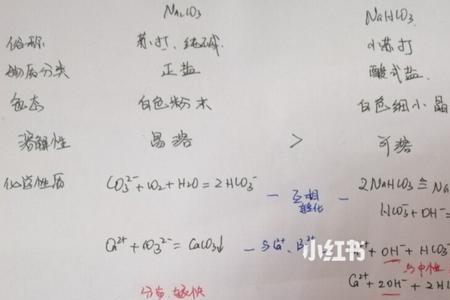 Na₂CO₃ NaHCO₃
俗称 苏打、纯碱 小苏打
物质分类 正盐 酸式盐
色态 白色粉末 白色细小晶
溶解性 易溶 > 可溶
化学性质 CO₃²⁻+CO₂+H₂O=2HCO₃⁻ — 互相转化 — 2NaHCO₃ ≜ Na
HCO₃⁻+OH⁻=
Ca²⁺+CO₃²⁻=CaCO₃↓ — 与Ca²⁺、Ba²⁺ +OH⁻+HCO₃
小红书
Ca²⁺+2OH⁻+2HC